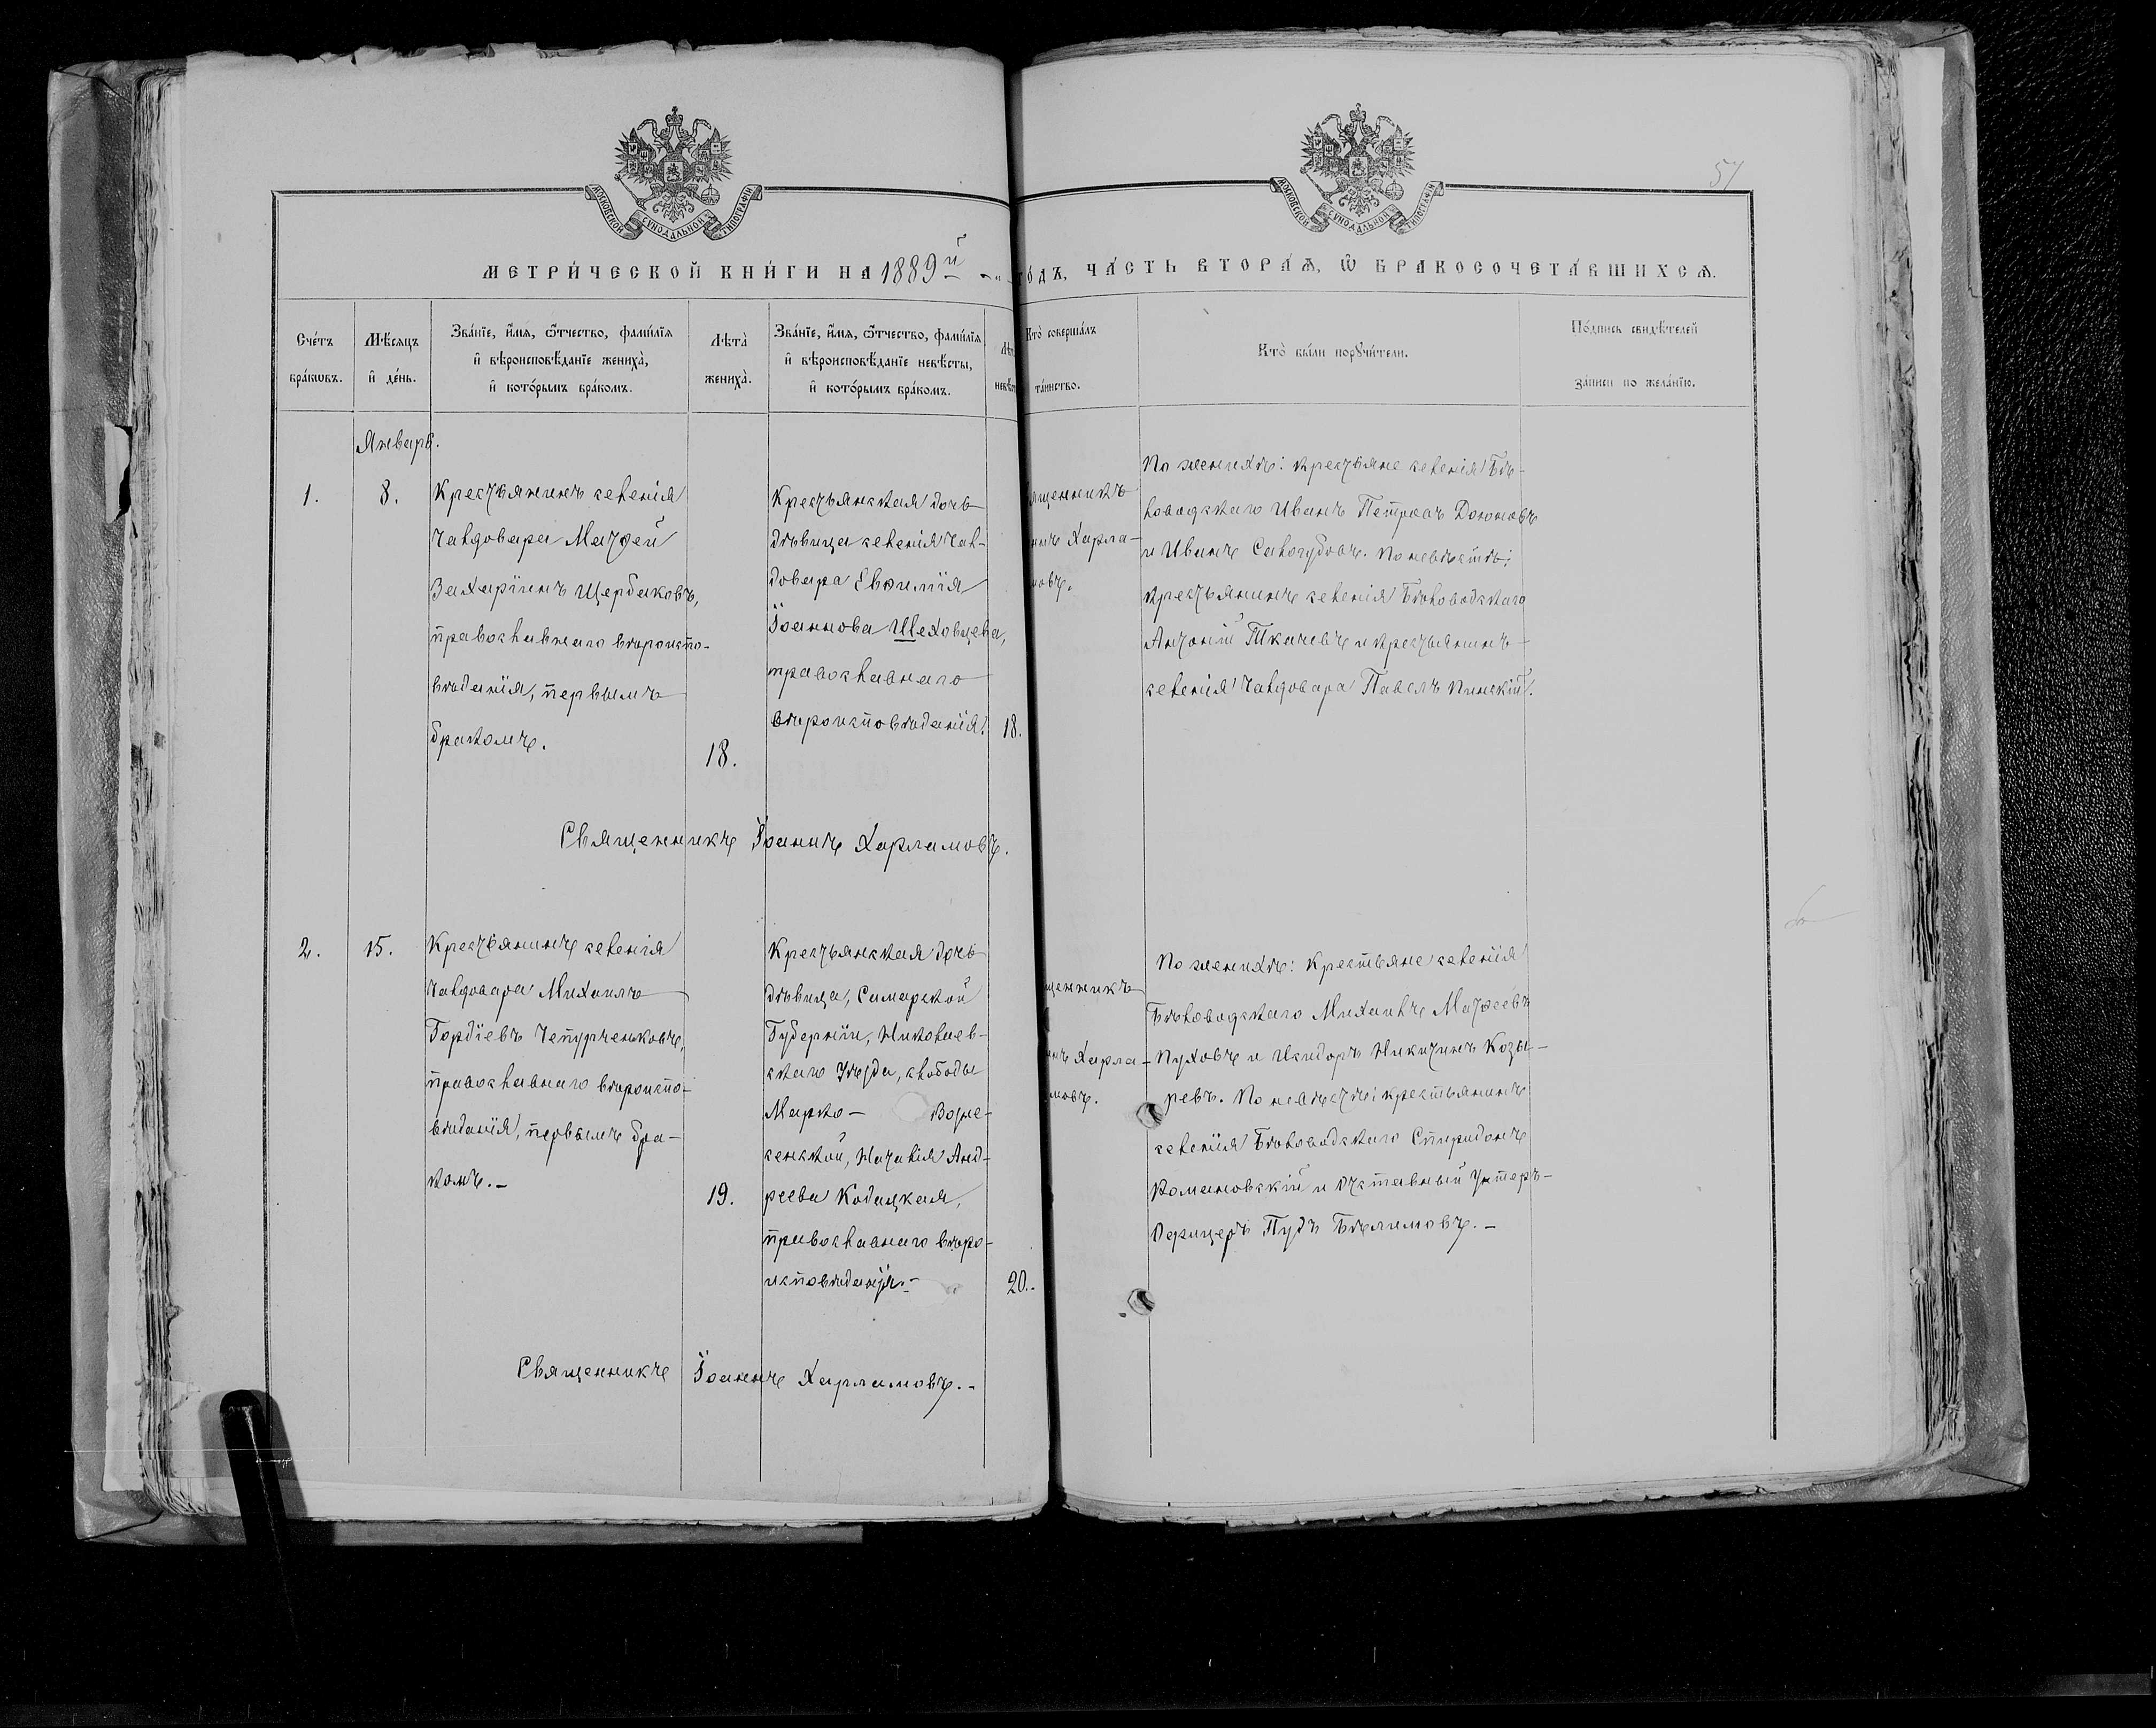 МОСКОВСКОЙ СѴНОДАЛЬНОЙ ТИПОГРАФІИ
МОСКОВСКОЙ СѴНОДАЛЬНОЙ ТИПОГРАФІИ
57
МЕТРИ́ЧЕСКОЙ КНИ́ГИ НА 1889й ГО́ДЪ, ЧА́СТЬ ВТОРА́Ѧ, Ѡ҆ БРАКОСОЧЕТА́ВШИХСѦ.
Сче́тъ
бра́кѡвъ.
Мѣ́сяцъ
и҆ де́нь.
Зва́нїе, и҆́мѧ, ѻ҆́тчество, фами́лїѧ
и҆ вѣроисповѣ́данїе жениха̀,
и҆ кото́рымъ бра́комъ.
Лѣта̀
жениха̀.
Зва́нїе, и҆́мѧ, ѻ҆́тчество, фами́лїѧ
и҆ вѣроисповѣ́данїе невѣ́сты,
и҆ кото́рымъ бра́комъ.
Лѣт
невѣс
Кто̀ соверша́лъ
та́инство.
Кто̀ бы́ли порꙋчи́тели.
По́дпись свидѣ́телей
за́писи по жела́нїю.
Январь.
1.
8.
Крестьянинъ селенія
Чалдовара Матѳей
Захаріинъ Щербаковъ,
православнаго вѣроиспо-
вѣданія, первымъ
бракомъ.
18.
Крестьянская дочь
дѣвица селенія Чал-
довара Евфимія
Іоаннова Шеховцева,
православнаго
вѣроисповѣданія.
18.
ященникъ
ннъ Харла-
мовъ.
По женихѣ: крестьяне селенія Бѣ-
ловодскаго Иванъ Петровъ
и Иванъ По невѣстѣ:
крестьянинъ селенія Бѣловодскаго
Антоній Ткачевъ и крестьянинъ
селенія Чалдовара Павелъ Пинскій.
Священникъ Іоаннъ Харламовъ.
2.
15.
Крестьянинъ селенія
Чалдовара Михаилъ
Гордіевъ Чепурченковъ,
православнаго вѣроиспо-
вѣданія, первымъ бра-
комъ.-
19.
Крестьянская дочь
дѣвица, Самарской
Губерніи, Николаев-
скаго Уѣзда, слободы
Марко- Возне-
сенской, Наталія Анд-
реева Кодацкая,
православнаго вѣро-
исповѣданія.-
20.-
щенникъ
ннъ Харла-
мовъ.
По женихѣ: крестьяне селенія
Бѣловодскаго Михаилъ Матѳеевъ
Пуховъ и Исидоръ Никитинъ Козы-
ревъ. По невѣстѣ: крестьянинъ
селенія Бѣловодскаго Спиридонъ
Романовскій и отставный Унтеръ-
Офицеръ Пудъ Бѣлимовъ.-
Священникъ Іоаннъ Харламовъ.-